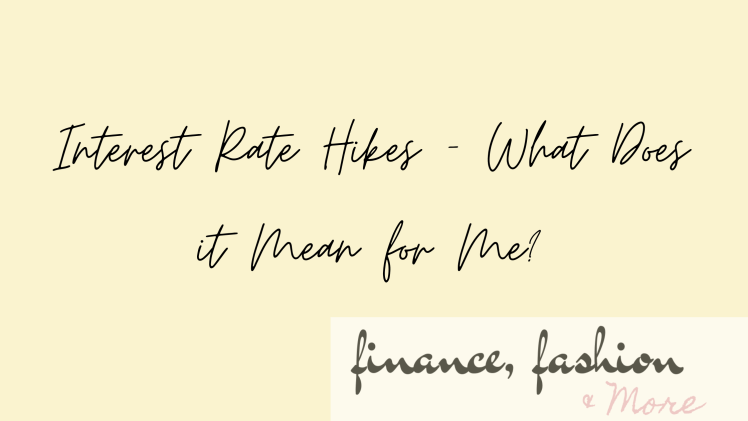 Interest Rate Hikes - What Does
it Mean for Me?
finance, fashion
& More